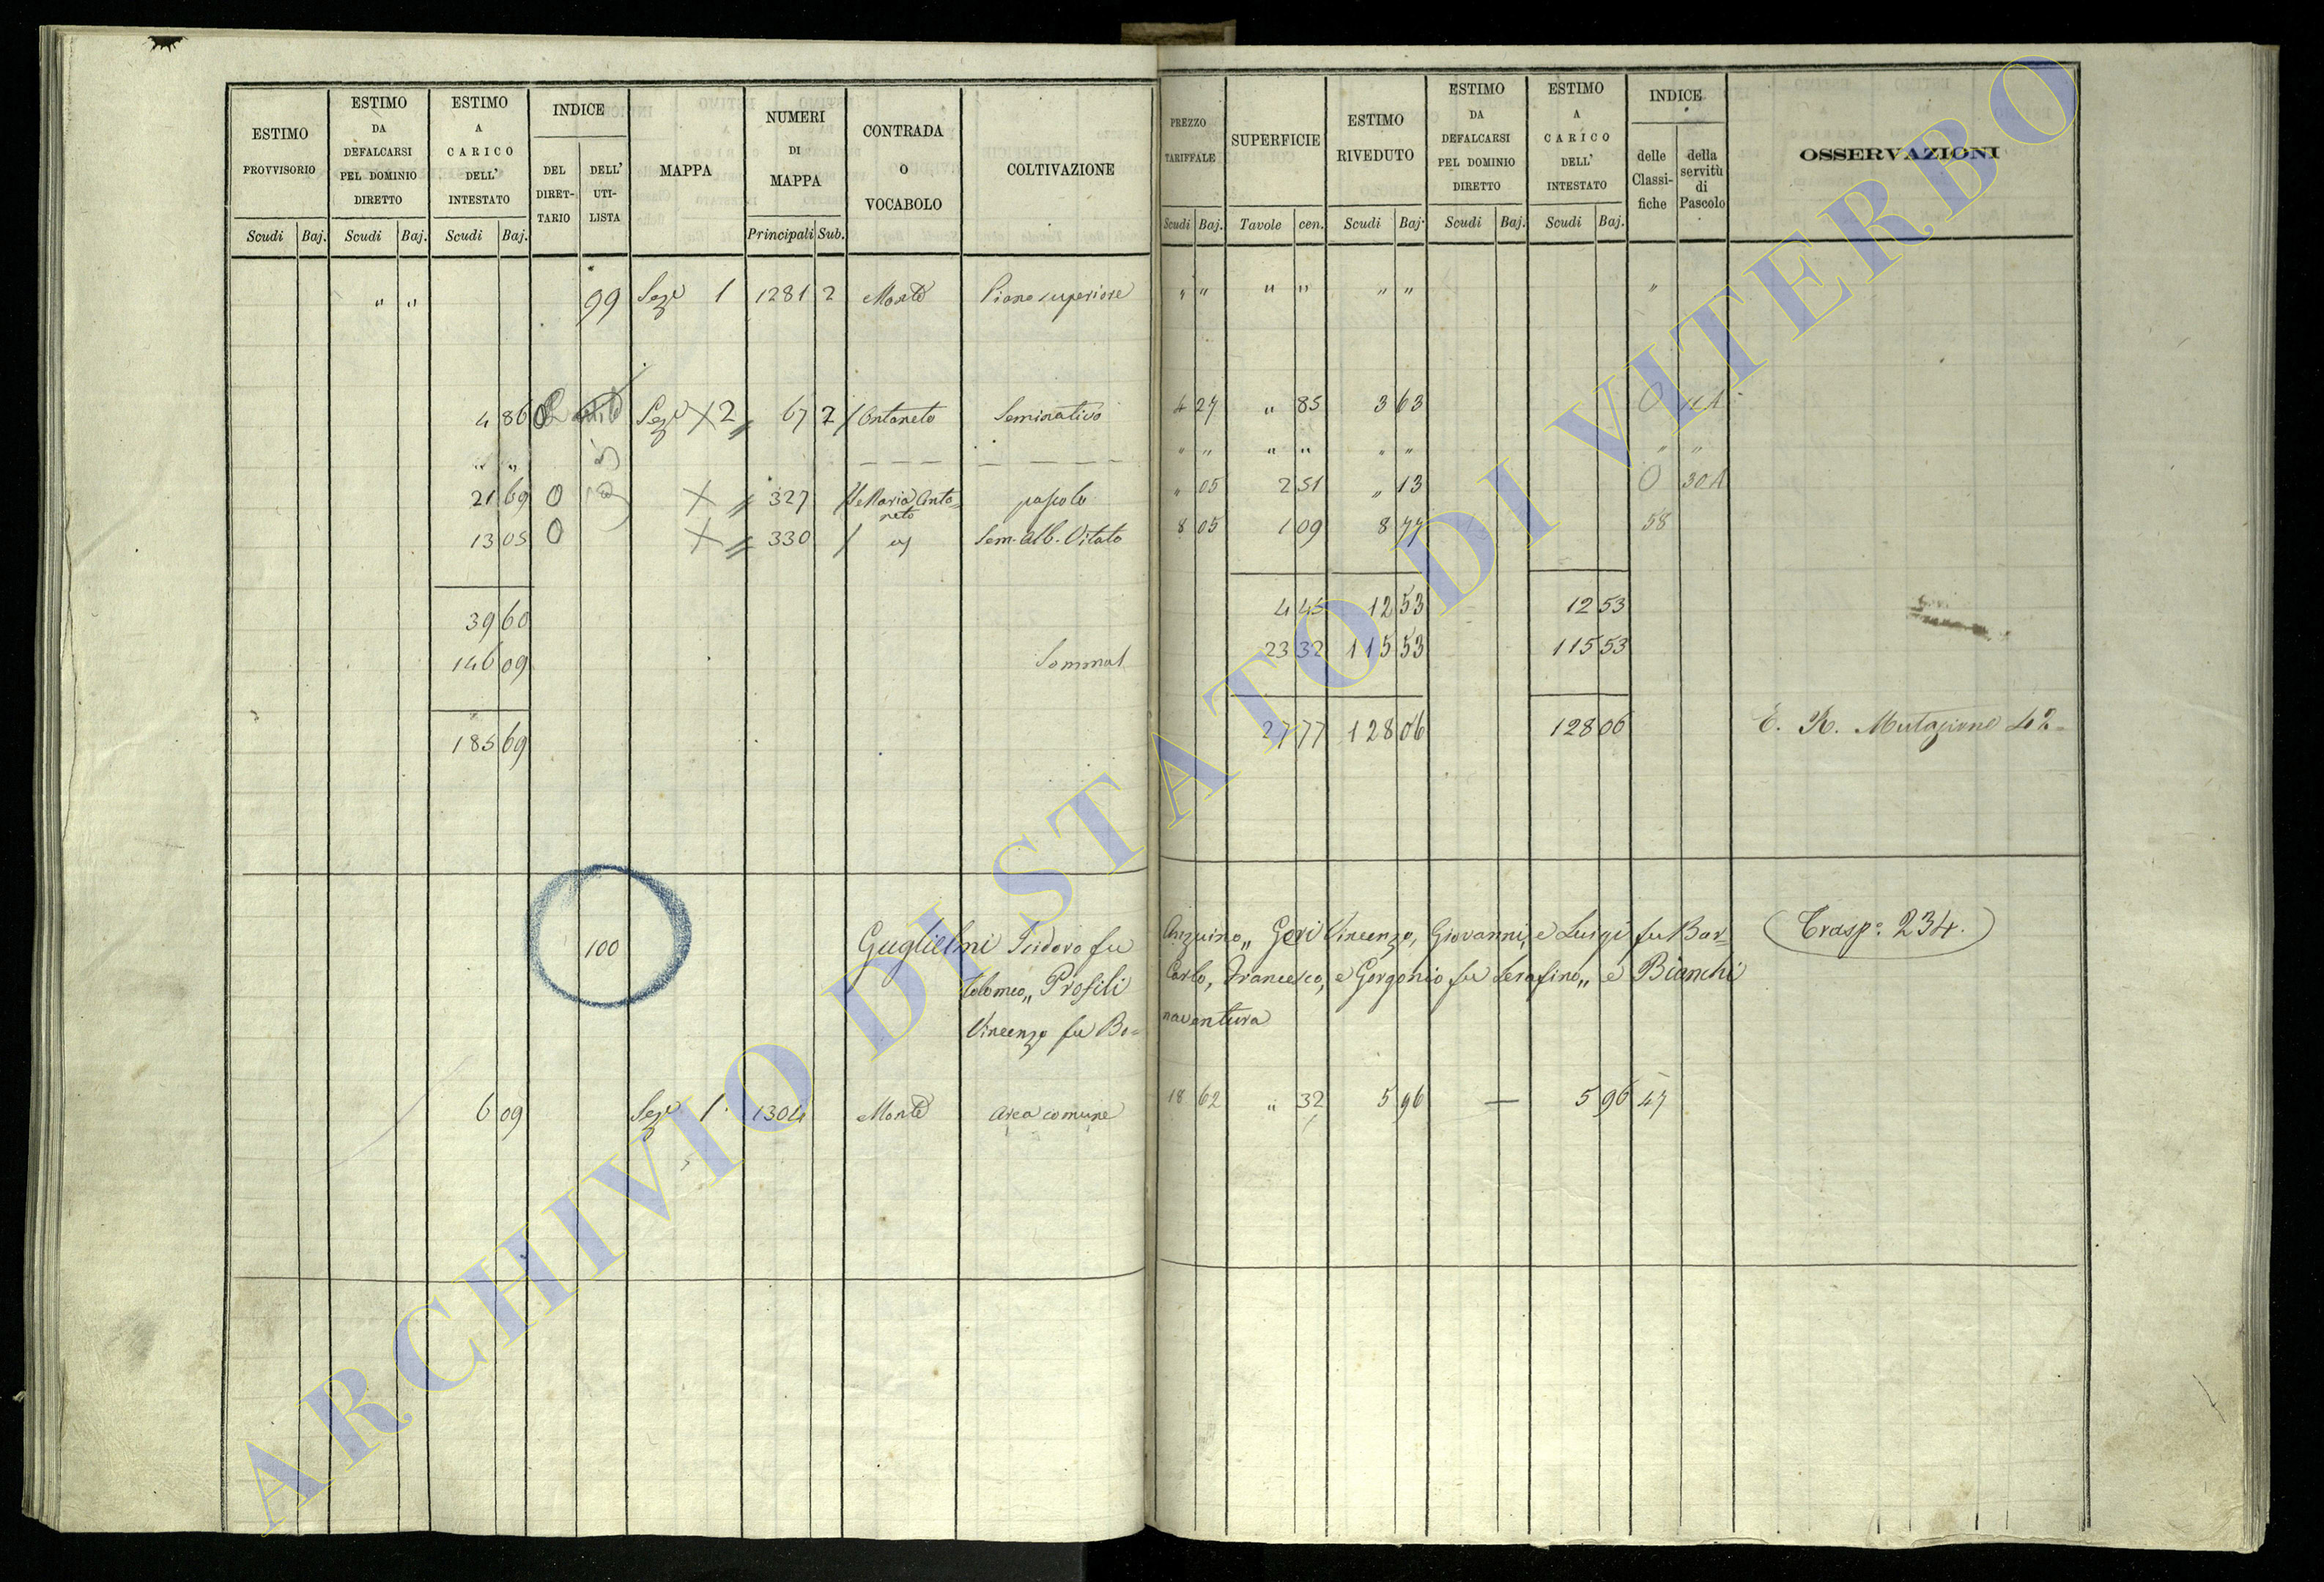 ESTIMO PROVVISORIO Scudi Baj.
ESTIMO DA DEFALCARSI PEL DOMINIO DIRETTO Scudi Baj.
ESTIMO A CARICO DELL' INTESTATO Scudi Baj.
INDICE DEL DIRETTARIO DELL' UTILISTA
MAPPA
NUMERI DI MAPPA Principali Sub.
CONTRADA O VOCABOLO
COLTIVAZIONE
PREZZO TARIFFALE Scudi Baj.
SUPERFICIE Tavole cen.
ESTIMO RIVEDUTO Scudi Baj.
ESTIMO DA DEFALCARSI PEL DOMINIO DIRETTO Scudi Baj.
ESTIMO A CARICO DELL' INTESTATO Scudi Baj.
INDICE delle Classifiche della servitù di Pascolo
OSSERVAZIONI
" " 99 Seze 1 1281 2 Monte Piano superiore " " " " " " "
4 86 0 Seze X 2 67 2 / Ontaneto Seminativo 4 27 " 85 3 63 0 11A
" " — — — — — — — " " " " " " " "
21 69 0 X 327 Maria Ontaneto pascolo " 05 2 51 " 13 0 30A
13 05 0 X 330 / Sem. Alb. Vitato 8 05 1 09 8 77 58
39 60 4 45 12 53 12 53
146 09 Sommat 23 32 115 53 115 53
185 69 27 77 128 06 128 06 E. R. Mutazione
100 Guglielmi Isidoro fu Anzuino,, Gori Vincenzo, Giovanni, e Luigi fu Bar= (Trasp° 234.)
tolomeo,, Profili Carlo, Francesco, e Gorgonio fu Serafino,, e Bianchi
Vincenzo fu Bo= naventura
6 09 Seze 1 1304 Monte Area comune 18 62 " 32 5 96 — 5 96 47
ARCHIVIO DI STATO DI VITERBO